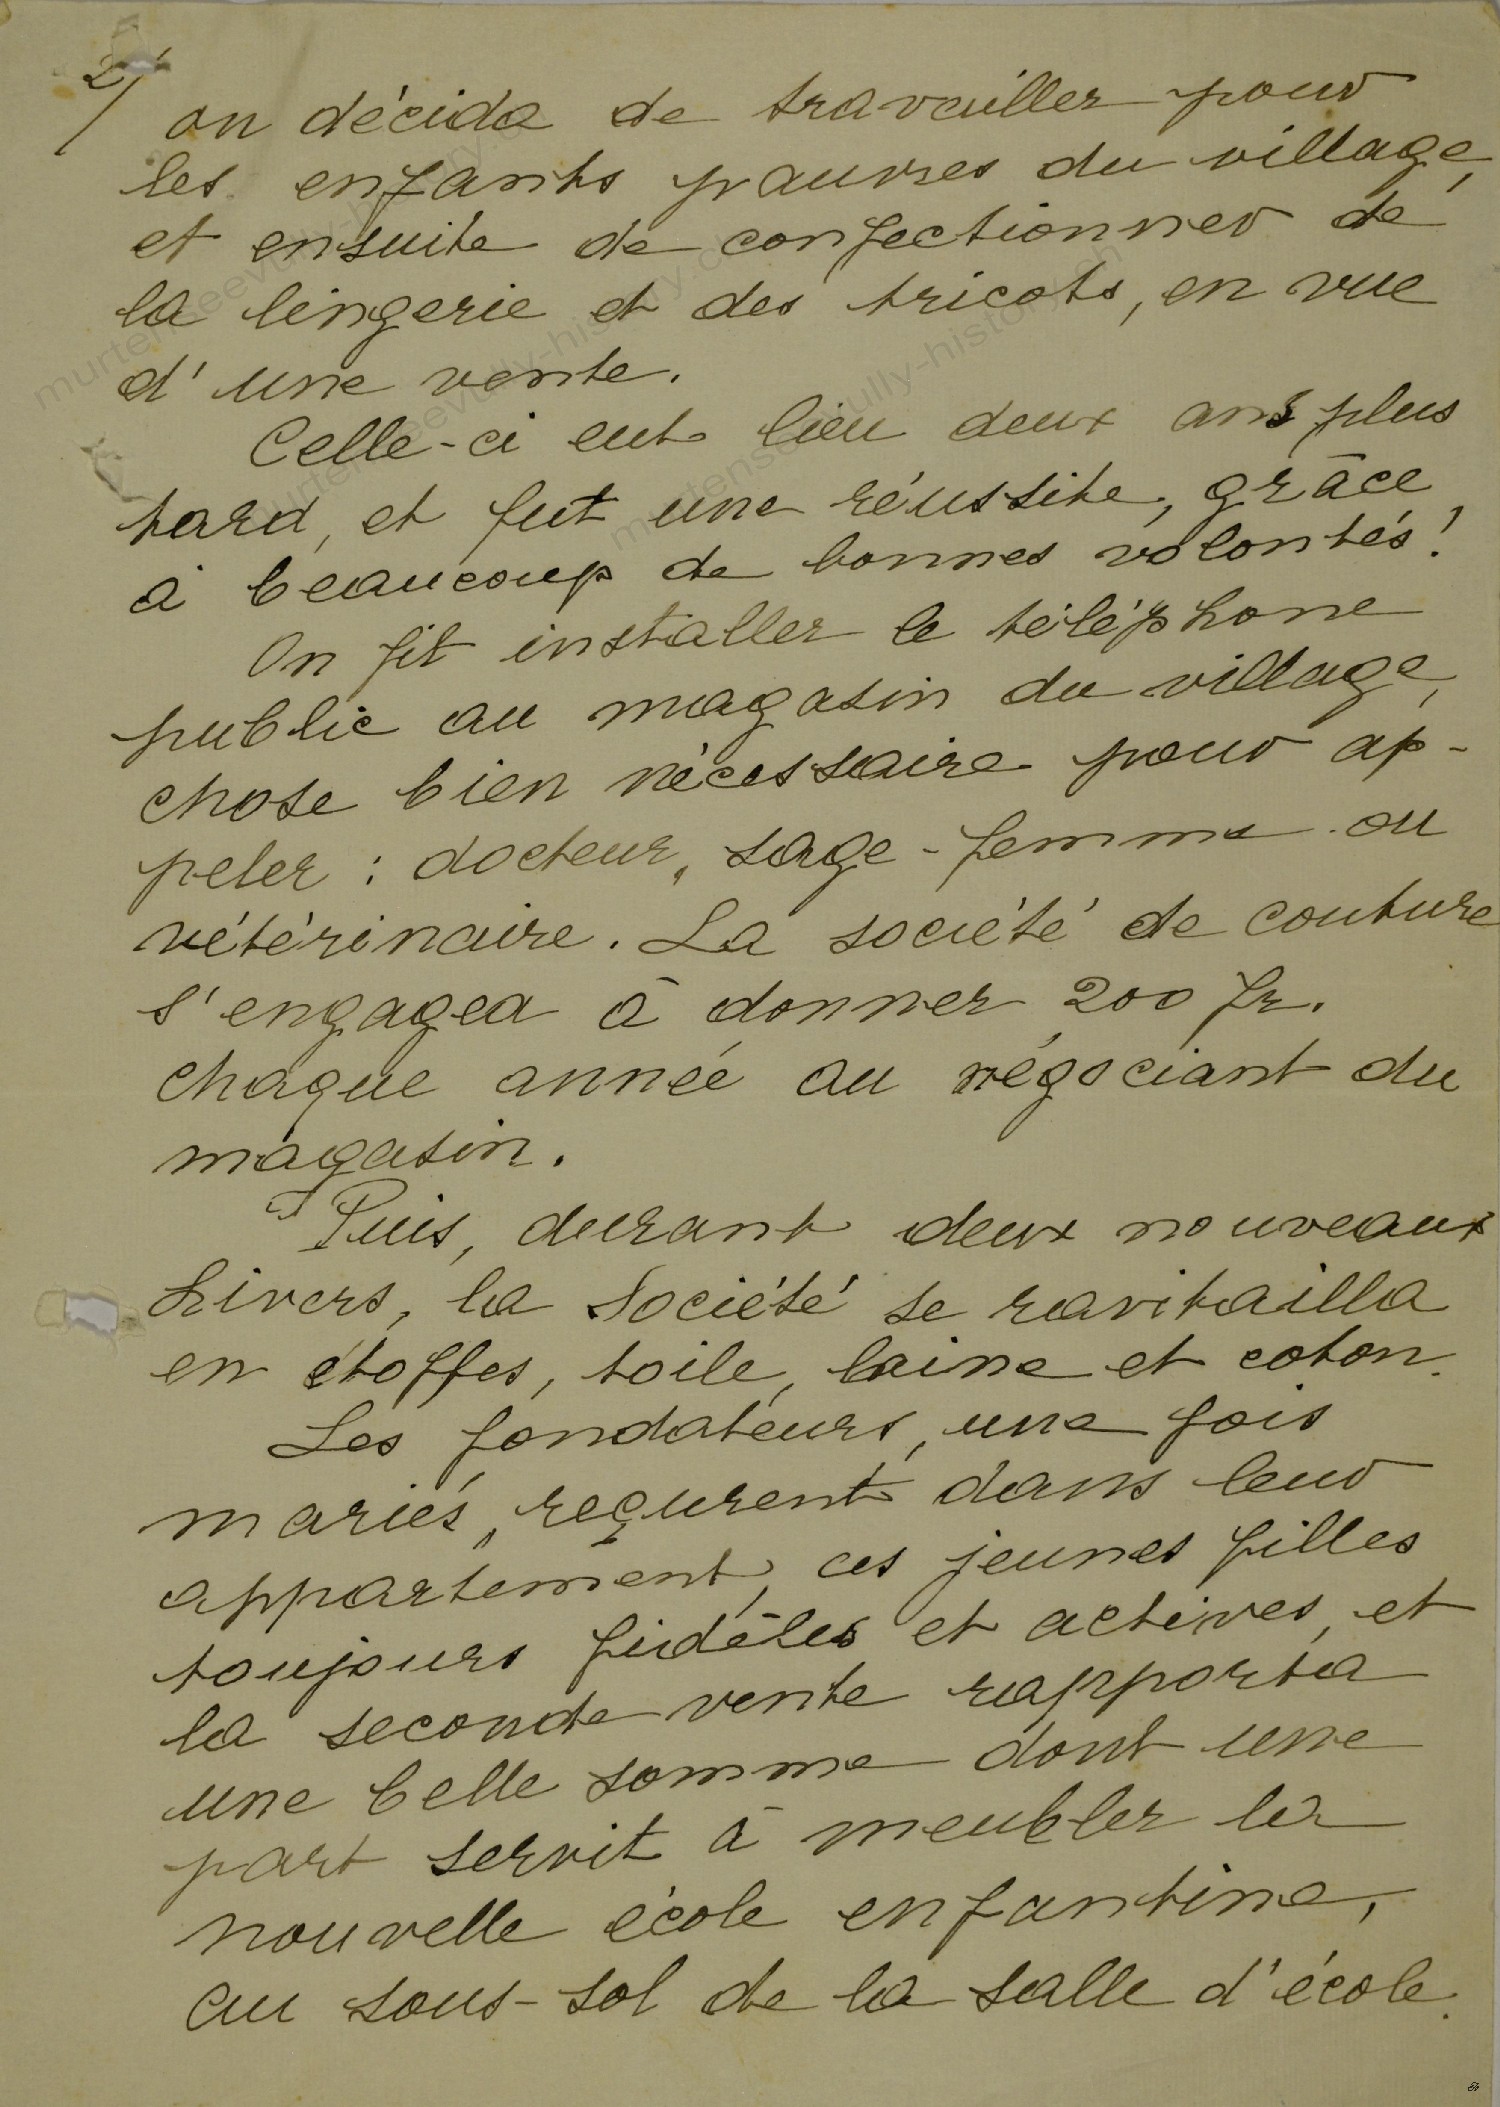 2/
on décida de travailler pour
les enfants pauvres du village,
et ensuite de confectionner de
la lingerie et des tricots, en vue
d'une vente.
Celle-ci eut lieu deux ans plus
tard, et fut une réussite, grâce
à beaucoup de bonnes volontés!
On fit installer le téléphone
public au magasin du village,
chose bien nécessaire pour ap-
peler : docteur, sage-femme ou
vétérinaire. La société de couture
s'engagea à donner 200 fr.
chaque année au négociant du
magasin.
Puis, durant deux nouveaux
hivers, la Société se ravitailla
en étoffes, toile, laine et coton.
Les fondateurs, une fois
mariés, reçurent dans leur
appartement, ces jeunes filles
toujours fidèles et actives, et
la seconde vente rapporta
une belle somme dont une
part servit à meubler la
nouvelle école enfantine,
au sous-sol de la salle d'école.